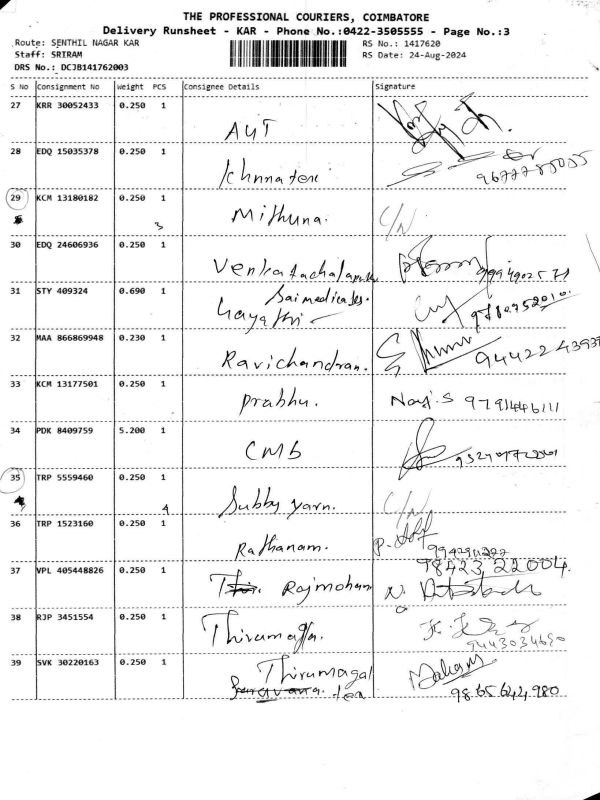 THE PROFESSIONAL COURIERS, COIMBATORE
Delivery Runsheet - KAR - Phone No.:0422-3505555 - Page No.:3
Route: SENTHIL NAGAR KAR RS No.: 1417620
Staff: SRIRAM RS Date: 24-Aug-2024
DRS No.: DCJB141762003
S No Consignment No Weight PCS Consignee Details Signature
27 KRR 30052433 0.250 1
AUT
28 EDQ 15035378 0.250 1
29 KCM 13180182 0.250 1
Mithuna. C/N
3
30 EDQ 24606936 0.250 1
31 STY 409324 0.690 1
Sai medicals.
Gayathri
32 MAA 866869948 0.230 1
Ravichandran.
33 KCM 13177501 0.250 1
Prabhu. 9791446111
34 PDK 8409759 5.200 1
CMB
35 TRP 5559460 0.250 1
4
Subby yarn. C/N
36 TRP 1523160 0.250 1
Rathanam.
98423 22004.
37 VPL 405448826 0.250 1
Rajmohan
38 RJP 3451554 0.250 1
39 SVK 30220163 0.250 1
Thirumagal
tex
9865644980